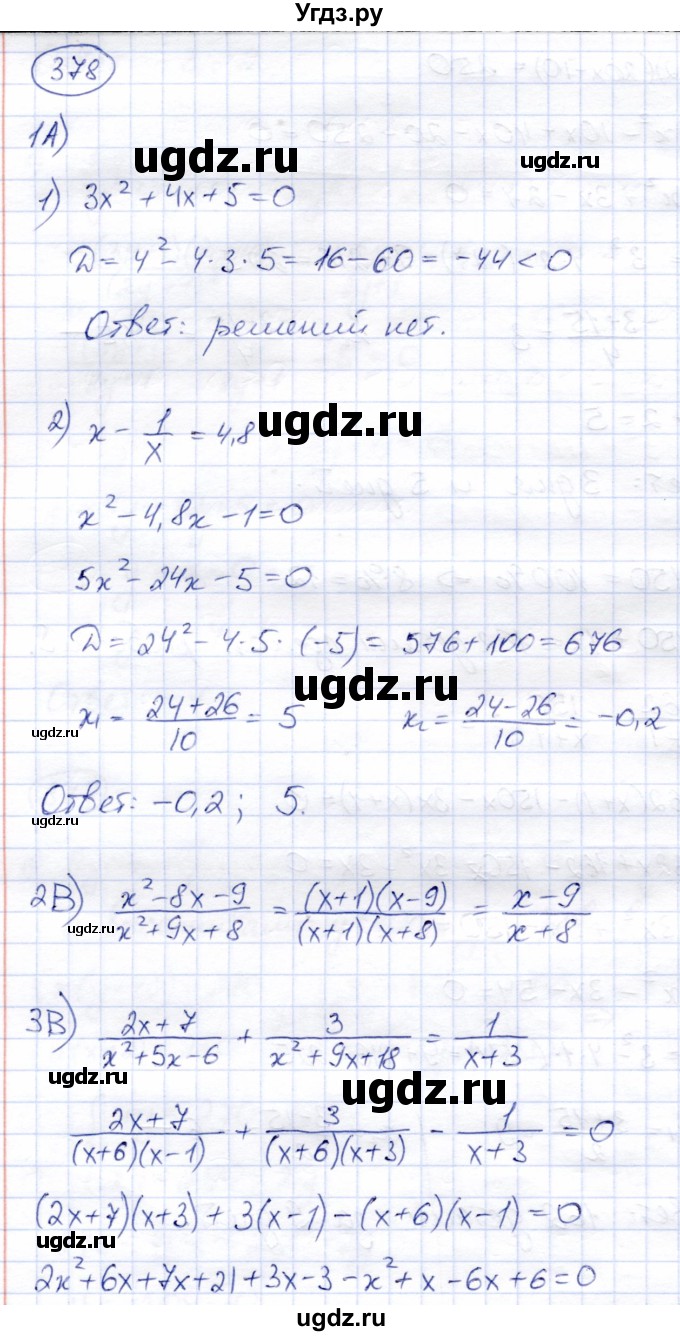 Угдз.ру
378
1А)
ugdz.ru ugdz.ru
1) 3x² + 4x + 5 = 0
Д = 4² - 4·3·5 = 16 - 60 = -44 < 0
Ответ: решений нет.
2) x - 1/x = 4,8
ugdz.ru
x² - 4,8x - 1 = 0
5x² - 24x - 5 = 0
Д = 24² - 4·5·(-5) = 576 + 100 = 676
ugdz.ru
x₁ = (24+26)/10 = 5 x₂ = (24-26)/10 = -0,2
ugdz.ru
Ответ: -0,2; 5.
ugdz.ru
2В) (x²-8x-9)/(x²+9x+8) = ((x+1)(x-9))/((x+1)(x+8)) = (x-9)/(x+8)
ugdz.ru
3В) (2x+7)/(x²+5x-6) + 3/(x²+9x+18) = 1/(x+3)
ugdz.ru ugdz.ru
(2x+7)/((x+6)(x-1)) + 3/((x+6)(x+3)) - 1/(x+3) = 0
(2x+7)(x+3) + 3(x-1) - (x+6)(x-1) = 0
ugdz.ru
2x²+6x+7x+21+3x-3-x²+x-6x+6=0
ugdz.ru